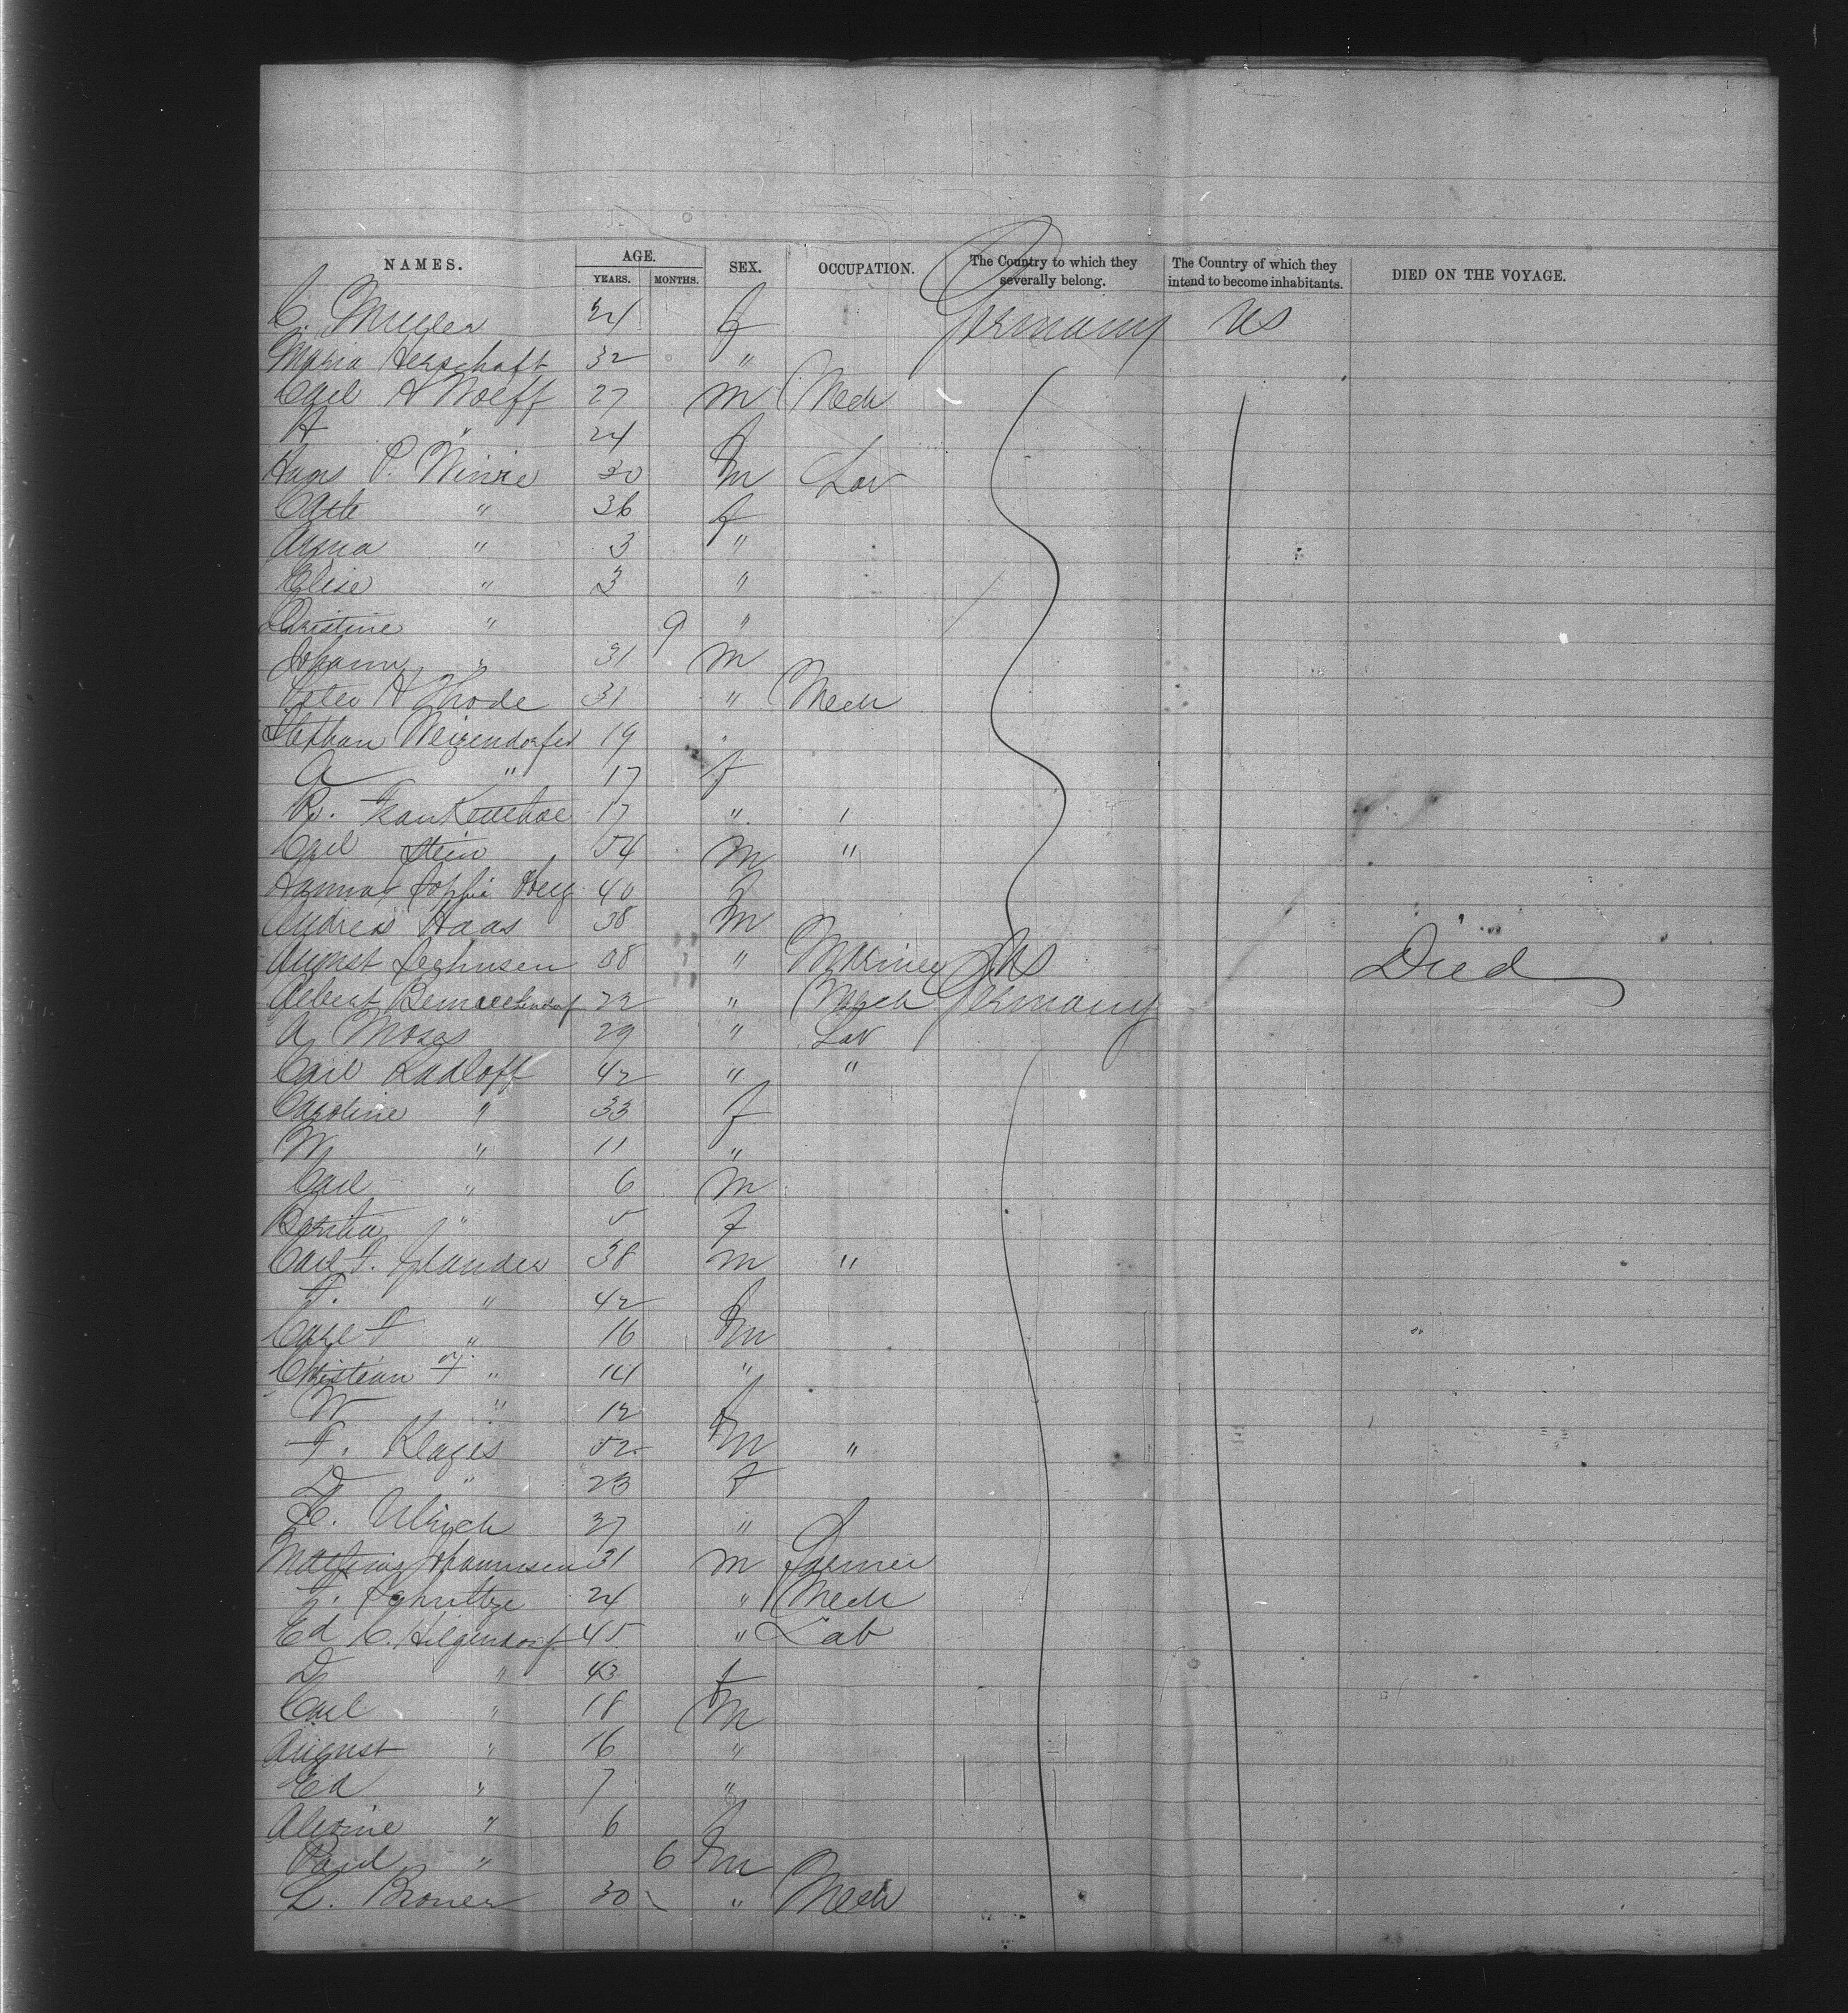 NAMES. AGE. SEX. OCCUPATION. The Country to which they severally belong. The Country of which they intend to become inhabitants. DIED ON THE VOYAGE.
YEARS. MONTHS.
C. 24 f Germany US
Maria Herschaft 32 "
Carl H Wolff 27 m Mech
H " 24 f
Hans P. 30 m Lav
36 f
Anna " 3 "
Elise " 3 "
Christine " 9 "
Johann " 31 m
Peter H Rhode 31 " Mech
Stephan 19 "
A " 17 f
17 "
Carl Stein 54 m "
Sophie 40 f
Andrea Haas 38 m
August 58 " US Died
Albert 22 " Mech Germany
A Moses 29 " Lav
Carl Radloff 42 " "
Caroline " 33 f
W " 11 "
Carl " 6 m
Bertha " 5 f
Carl F. 38 m "
F. " 42 f
Carl F " 16 m
Christian F " 14 "
W " 12 f
F. Klages 52 m "
D " 23 f
Ulrich 37 "
Mathias Johannsen 31 m Farmer
F. Schultze 24 " Mech
Ed C. Hilgendorf 45 " Lab
D " 43 f
Carl " 18 m
August " 16 "
Ed " 7 "
Alvine " 6 f
Paul " 6 m
L. 30 " Mech